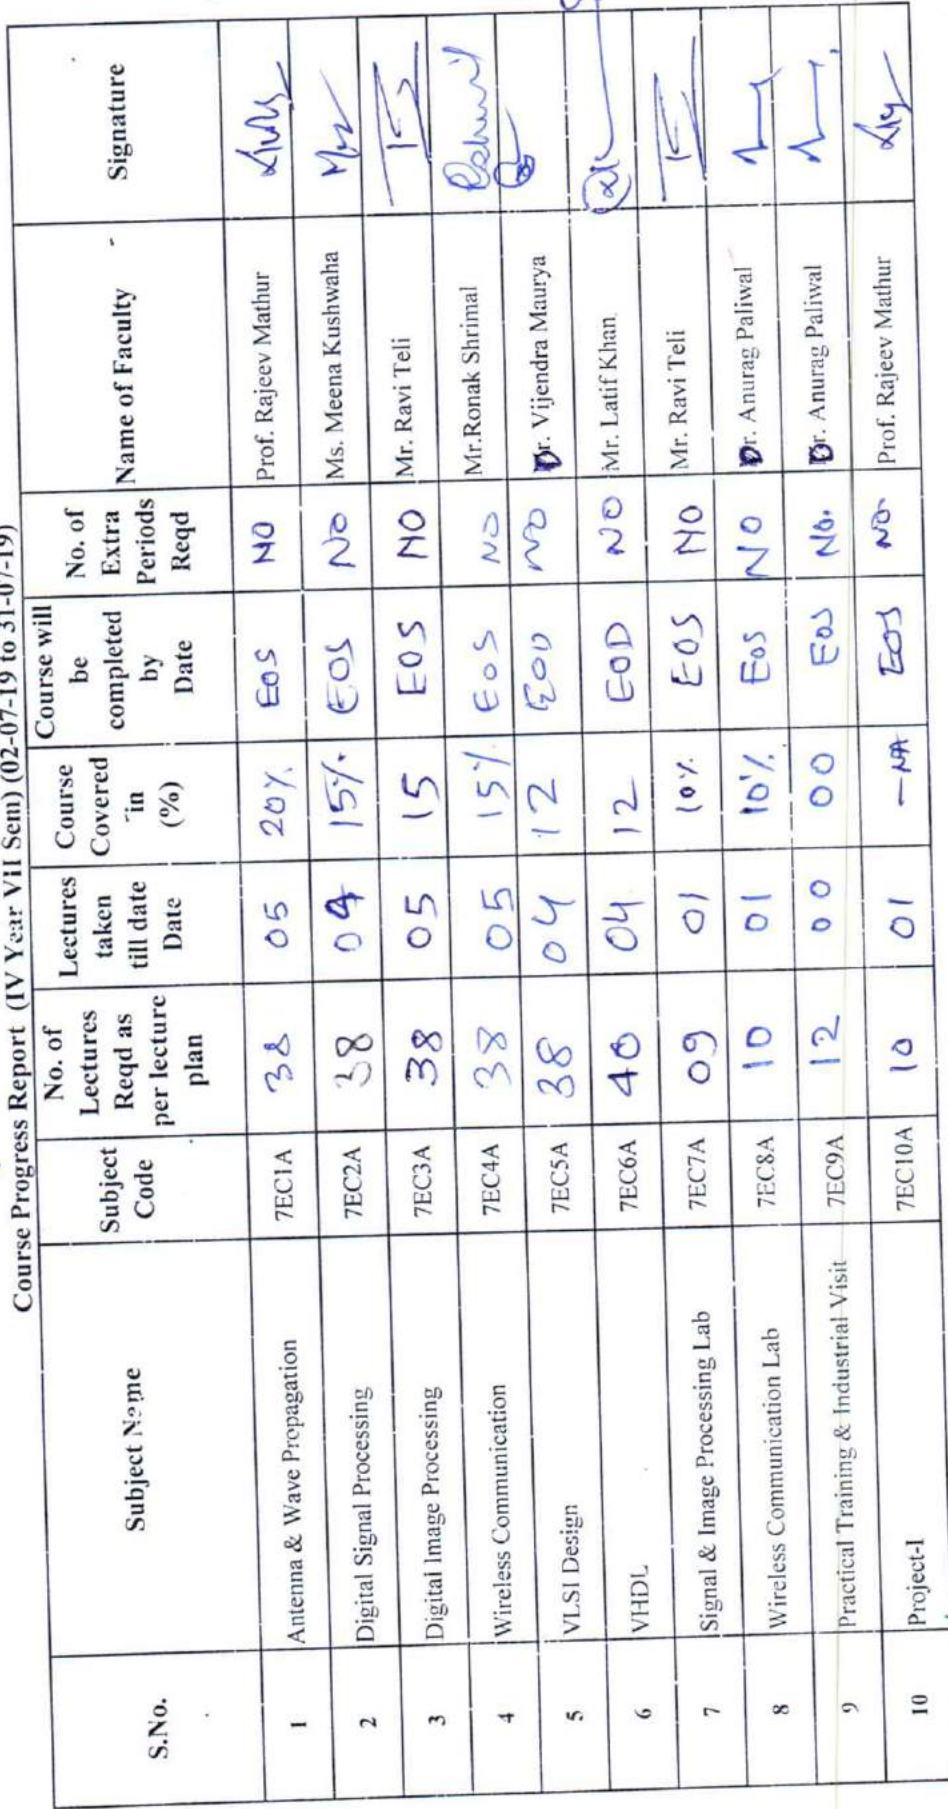 Course Progress Report (IV Year VII Sem) (02-07-19 to 31-07-19)
S.No. Subject Name Subject Code No. of Lectures Reqd as per lecture plan Lectures taken till date Date Course Covered in (%) Course will be completed by Date No. of Extra Periods Reqd Name of Faculty Signature
1 Antenna & Wave Propagation 7EC1A 38 05 20% EOS NO Prof. Rajeev Mathur
2 Digital Signal Processing 7EC2A 38 04 15%. EOS NO Ms. Meena Kushwaha
3 Digital Image Processing 7EC3A 38 05 15 EOS NO Mr. Ravi Teli
4 Wireless Communication 7EC4A 38 05 15% EOS NO Mr.Ronak Shrimal
5 VLSI Design 7EC5A 38 04 12 EOD NO Dr. Vijendra Maurya
6 VHDL 7EC6A 40 04 12 EOD NO Mr. Latif Khan
7 Signal & Image Processing Lab 7EC7A 09 01 10% EOS NO Mr. Ravi Teli
8 Wireless Communication Lab 7EC8A 10 01 10% EOS NO Dr. Anurag Paliwal
9 Practical Training & Industrial Visit 7EC9A 12 00 00 EOS No. Dr. Anurag Paliwal
10 Project-I 7EC10A 10 01 - NA EOS NO- Prof. Rajeev Mathur